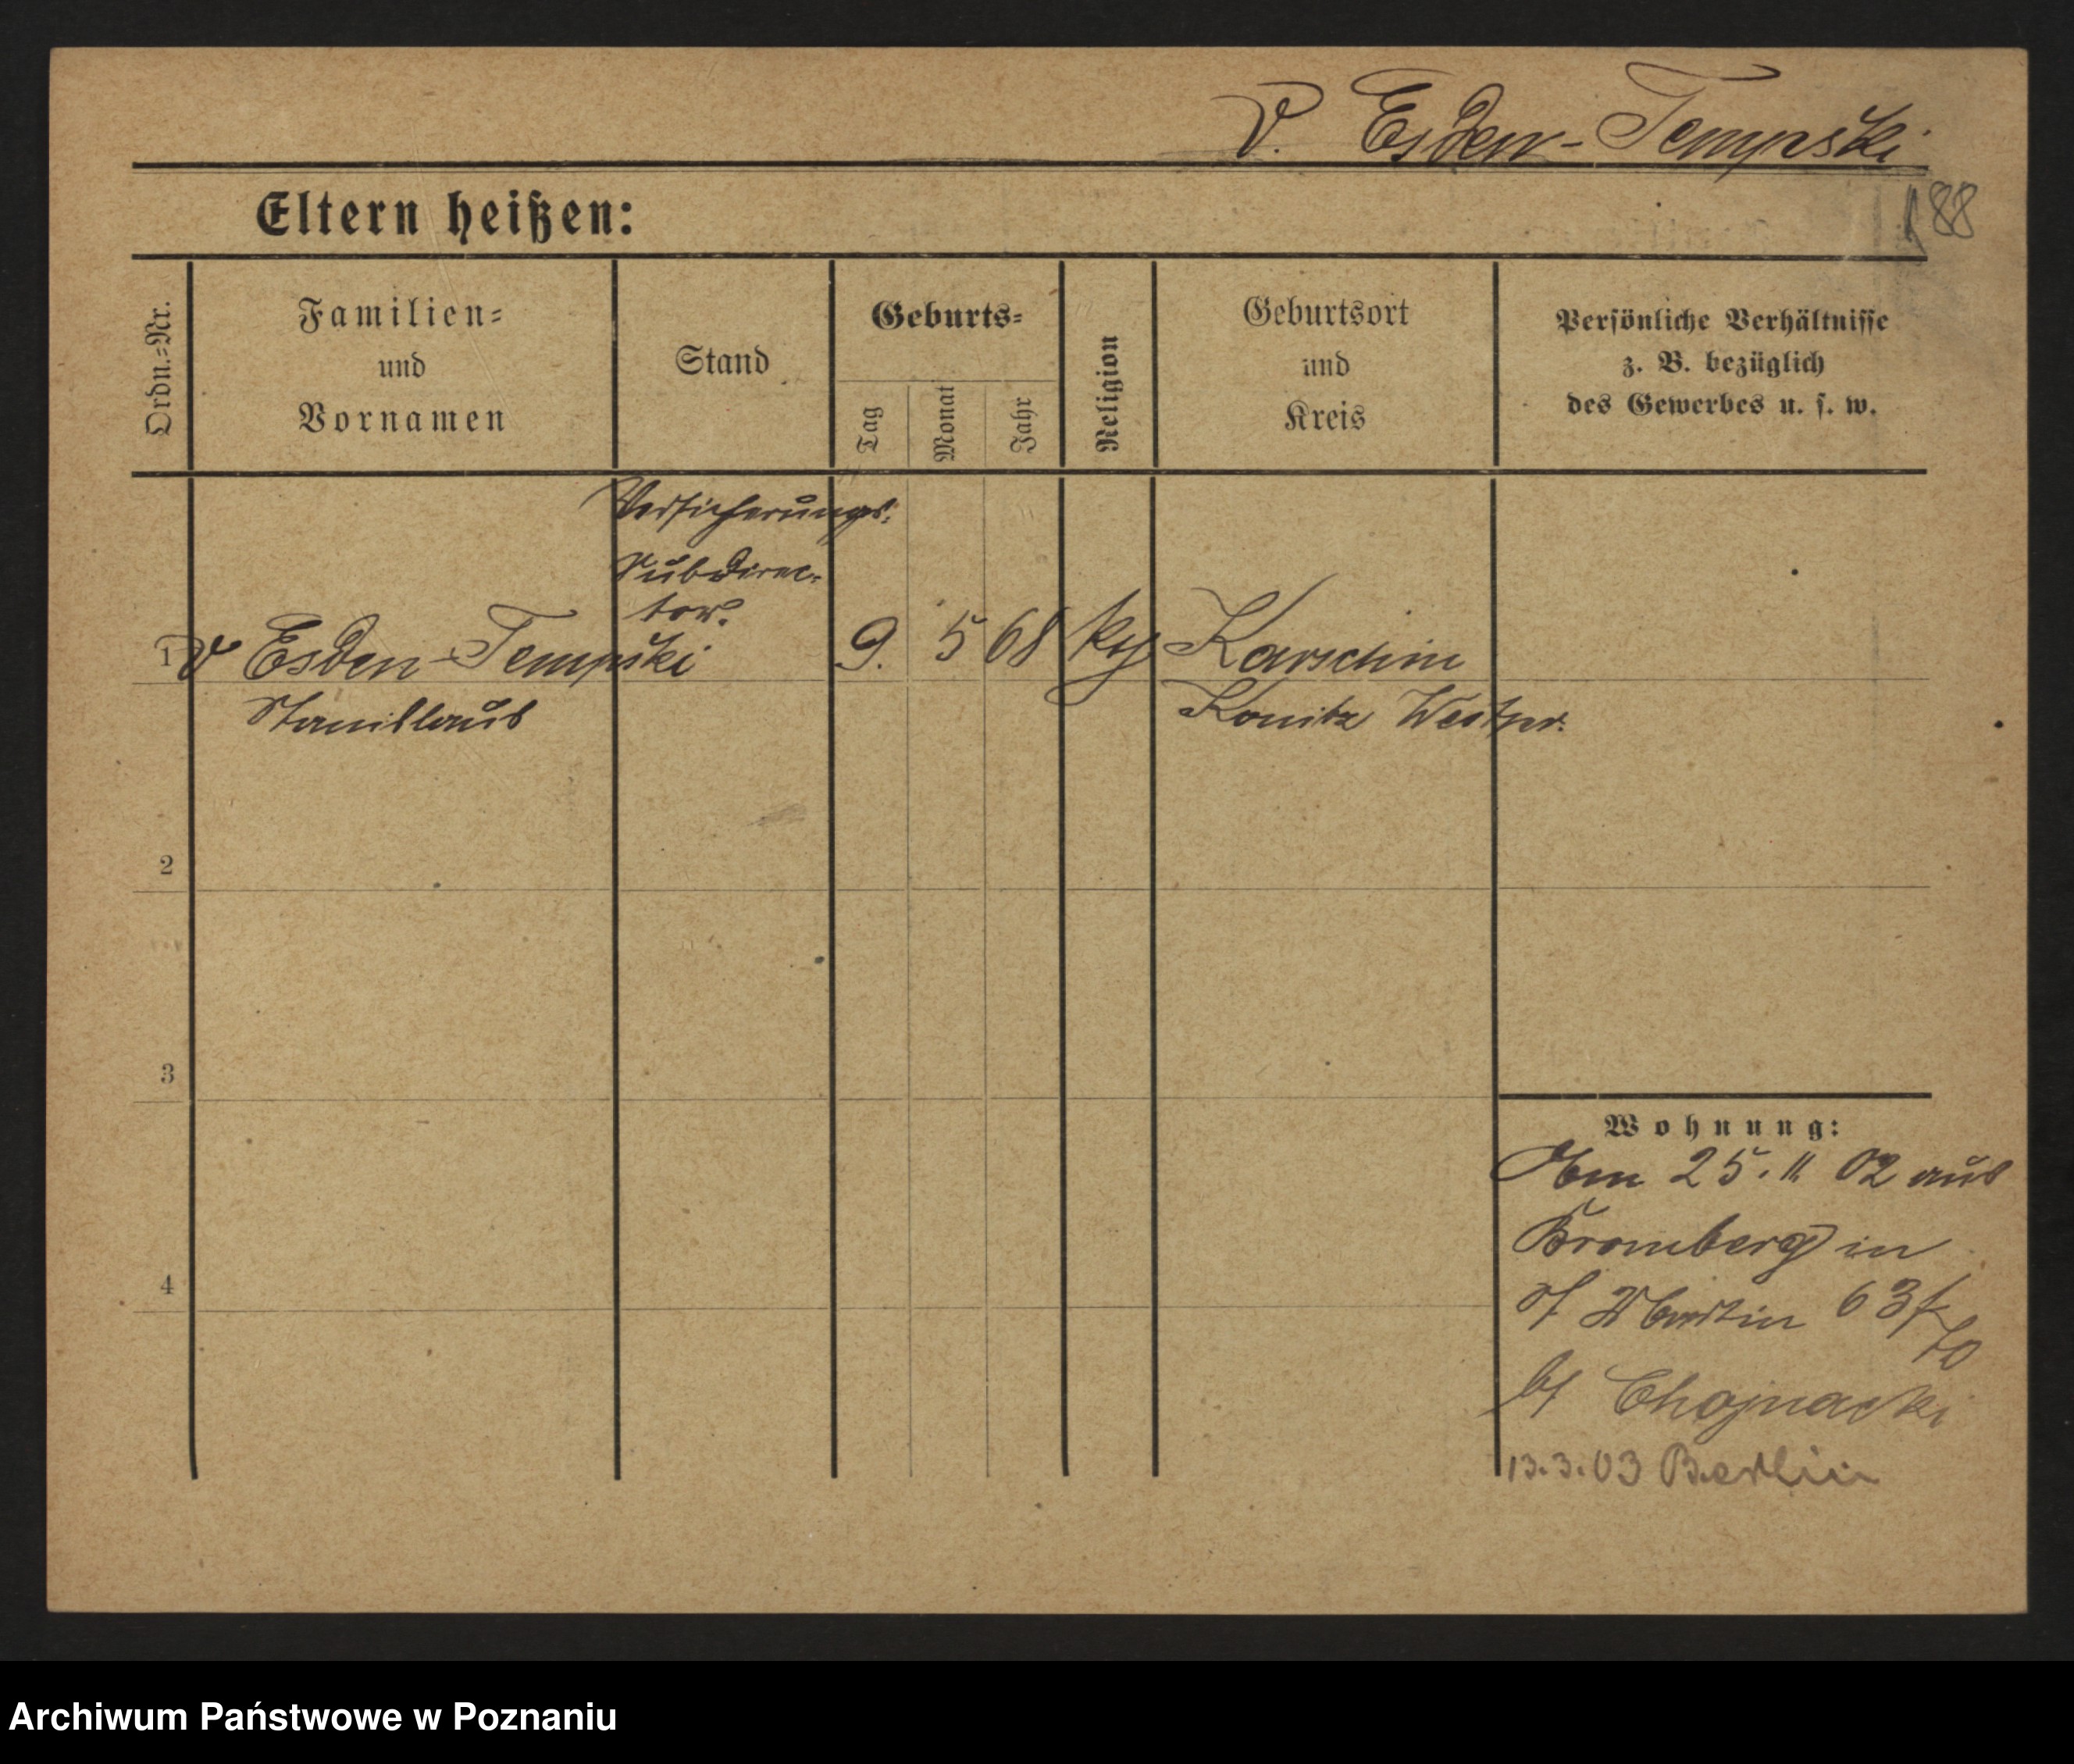 v. Esden-Tempski
188
Eltern heißen:
Ordn.-Nr.
Familien-
und
Vornamen
Stand
Geburts-
Tag
Monat
Jahr
Religion
Geburtsort
und
Kreis
Persönliche Verhältnisse
z. B. bezüglich
des Gewerbes u. s. w.
Versicherungs-
Subdirec-
tor.
1 v Esden-Tempski 9. 5 68 Karschin
Stanislaus Konitz Westpr.
2
3
4
Wohnung:
Am 25. 11. 02 aus
Bromberg in
St Martin 63
b/ Chojnacki
13.3.03 Berlin
Archiwum Państwowe w Poznaniu